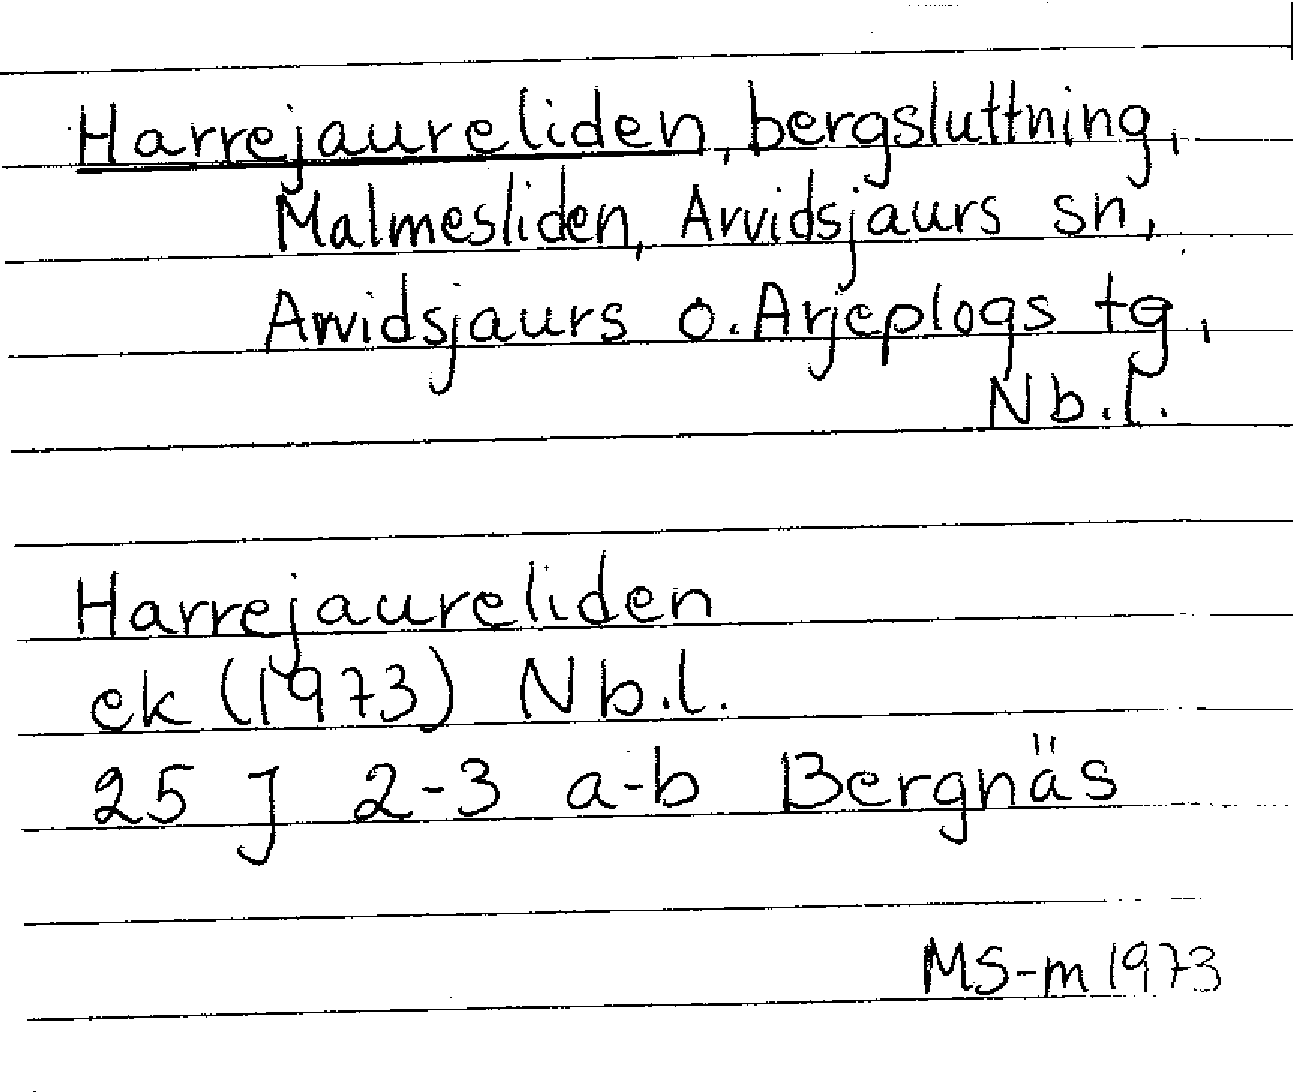 Harrejaureliden, bergsluttning,
Malmesliden, Arvidsjaurs sn,
Arvidsjaurs o. Arjeplogs tg,
Nb.l.
Harrejaureliden
ek (1973) Nb.l.
25 J 2-3 a-b Bergnäs
MS-m 1973